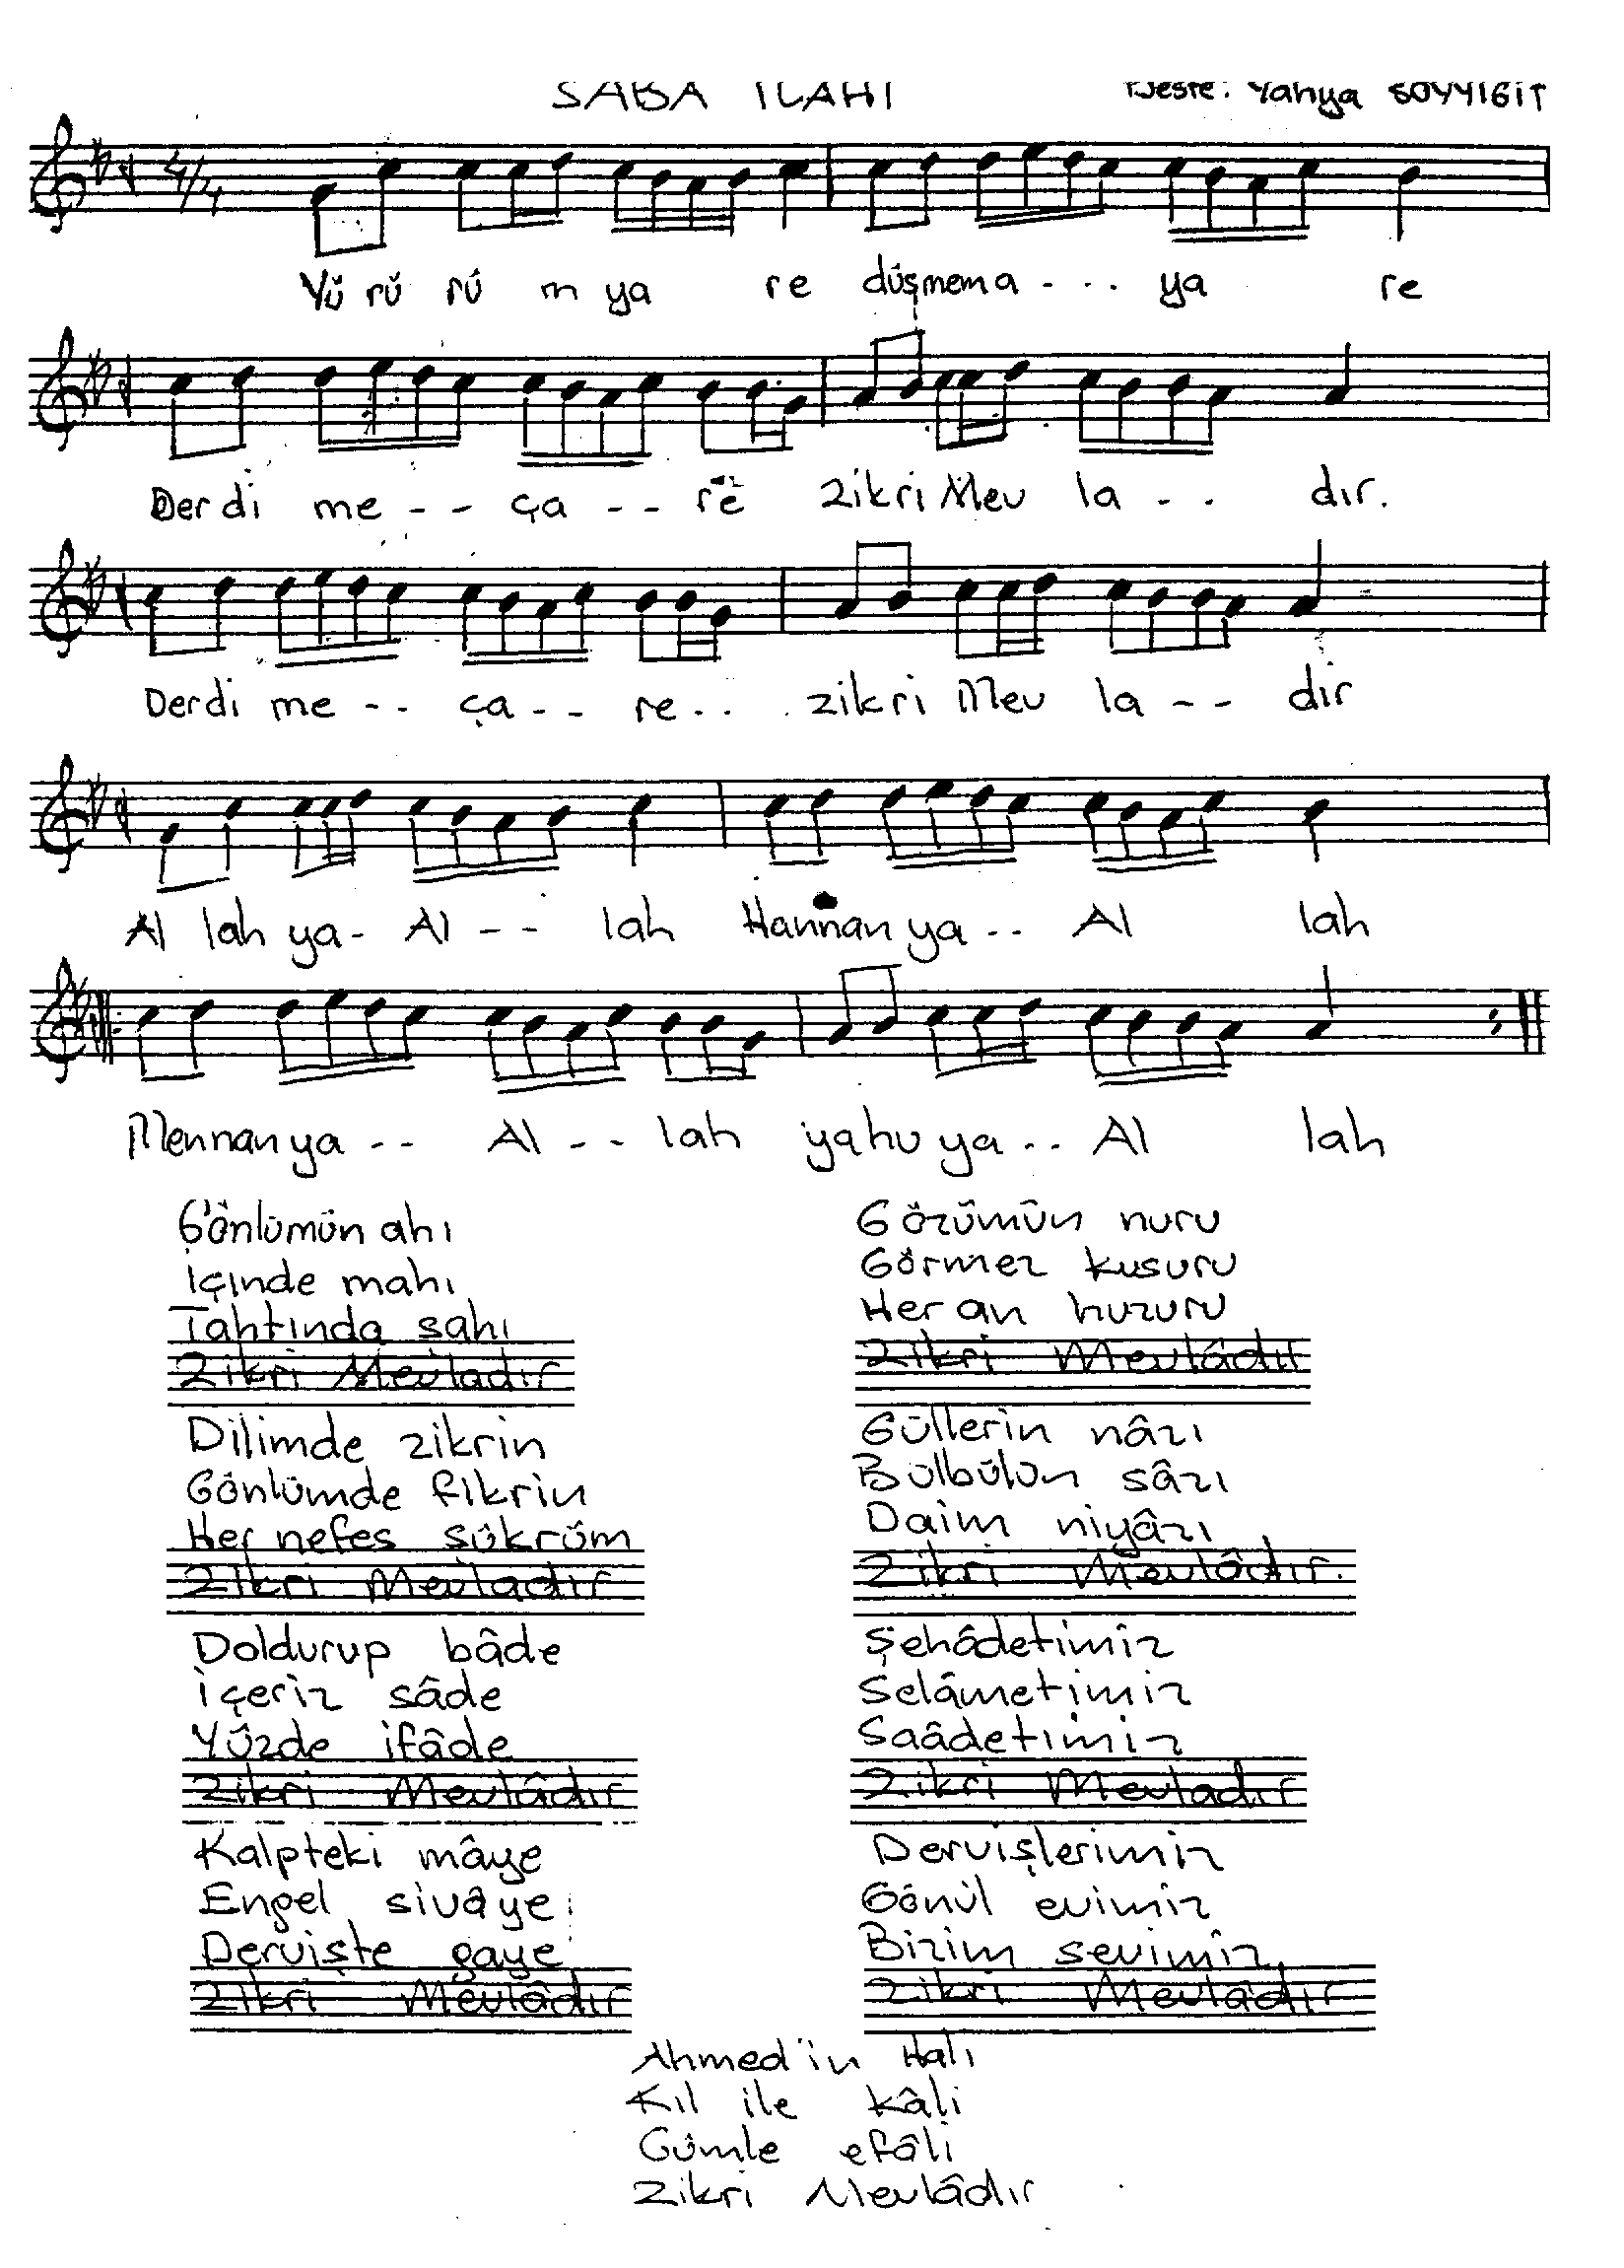 SABA İLAHİ
Beste: Yahya SOYYIGIT
4/4
Yü rü rü m ya re düşmema - - - ya re
Derdi me - - ça - - re zikri Mev la - - dır.
Derdi me - - ça - - re - - zikri Mev la - - dır
Al lah ya - Al - - lah Hannan ya - - Al lah
Mennan ya - - Al - - lah yahu ya - - Al lah
Gönlümün ahı
İçinde mahı
Tahtında şahı
Zikri Mevladır
Dilimde zikrin
Gönlümde fikrin
Her nefes şükrüm
Zikri Mevladır
Doldurup bâde
İçeriz sâde
Yüzde ifâde
Zikri Mevlâdır
Kalpteki mâye
Engel sivâye
Dervişte gaye
Zikri Mevlâdır
Gözümün nuru
Görmez kusuru
Her an huzuru
Zikri Mevlâdır
Güllerin nâzı
Bülbülün sâzı
Daim niyâzı
Zikri Mevlâdır.
Şehâdetimiz
Selâmetimiz
Saâdetimiz
Zikri Mevladır
Dervişlerimiz
Gönül evimiz
Bizim sevimiz
Zikri Mevlâdır
Ahmed'in Hali
Kıl ile kâli
Cümle efâli
Zikri Mevlâdır